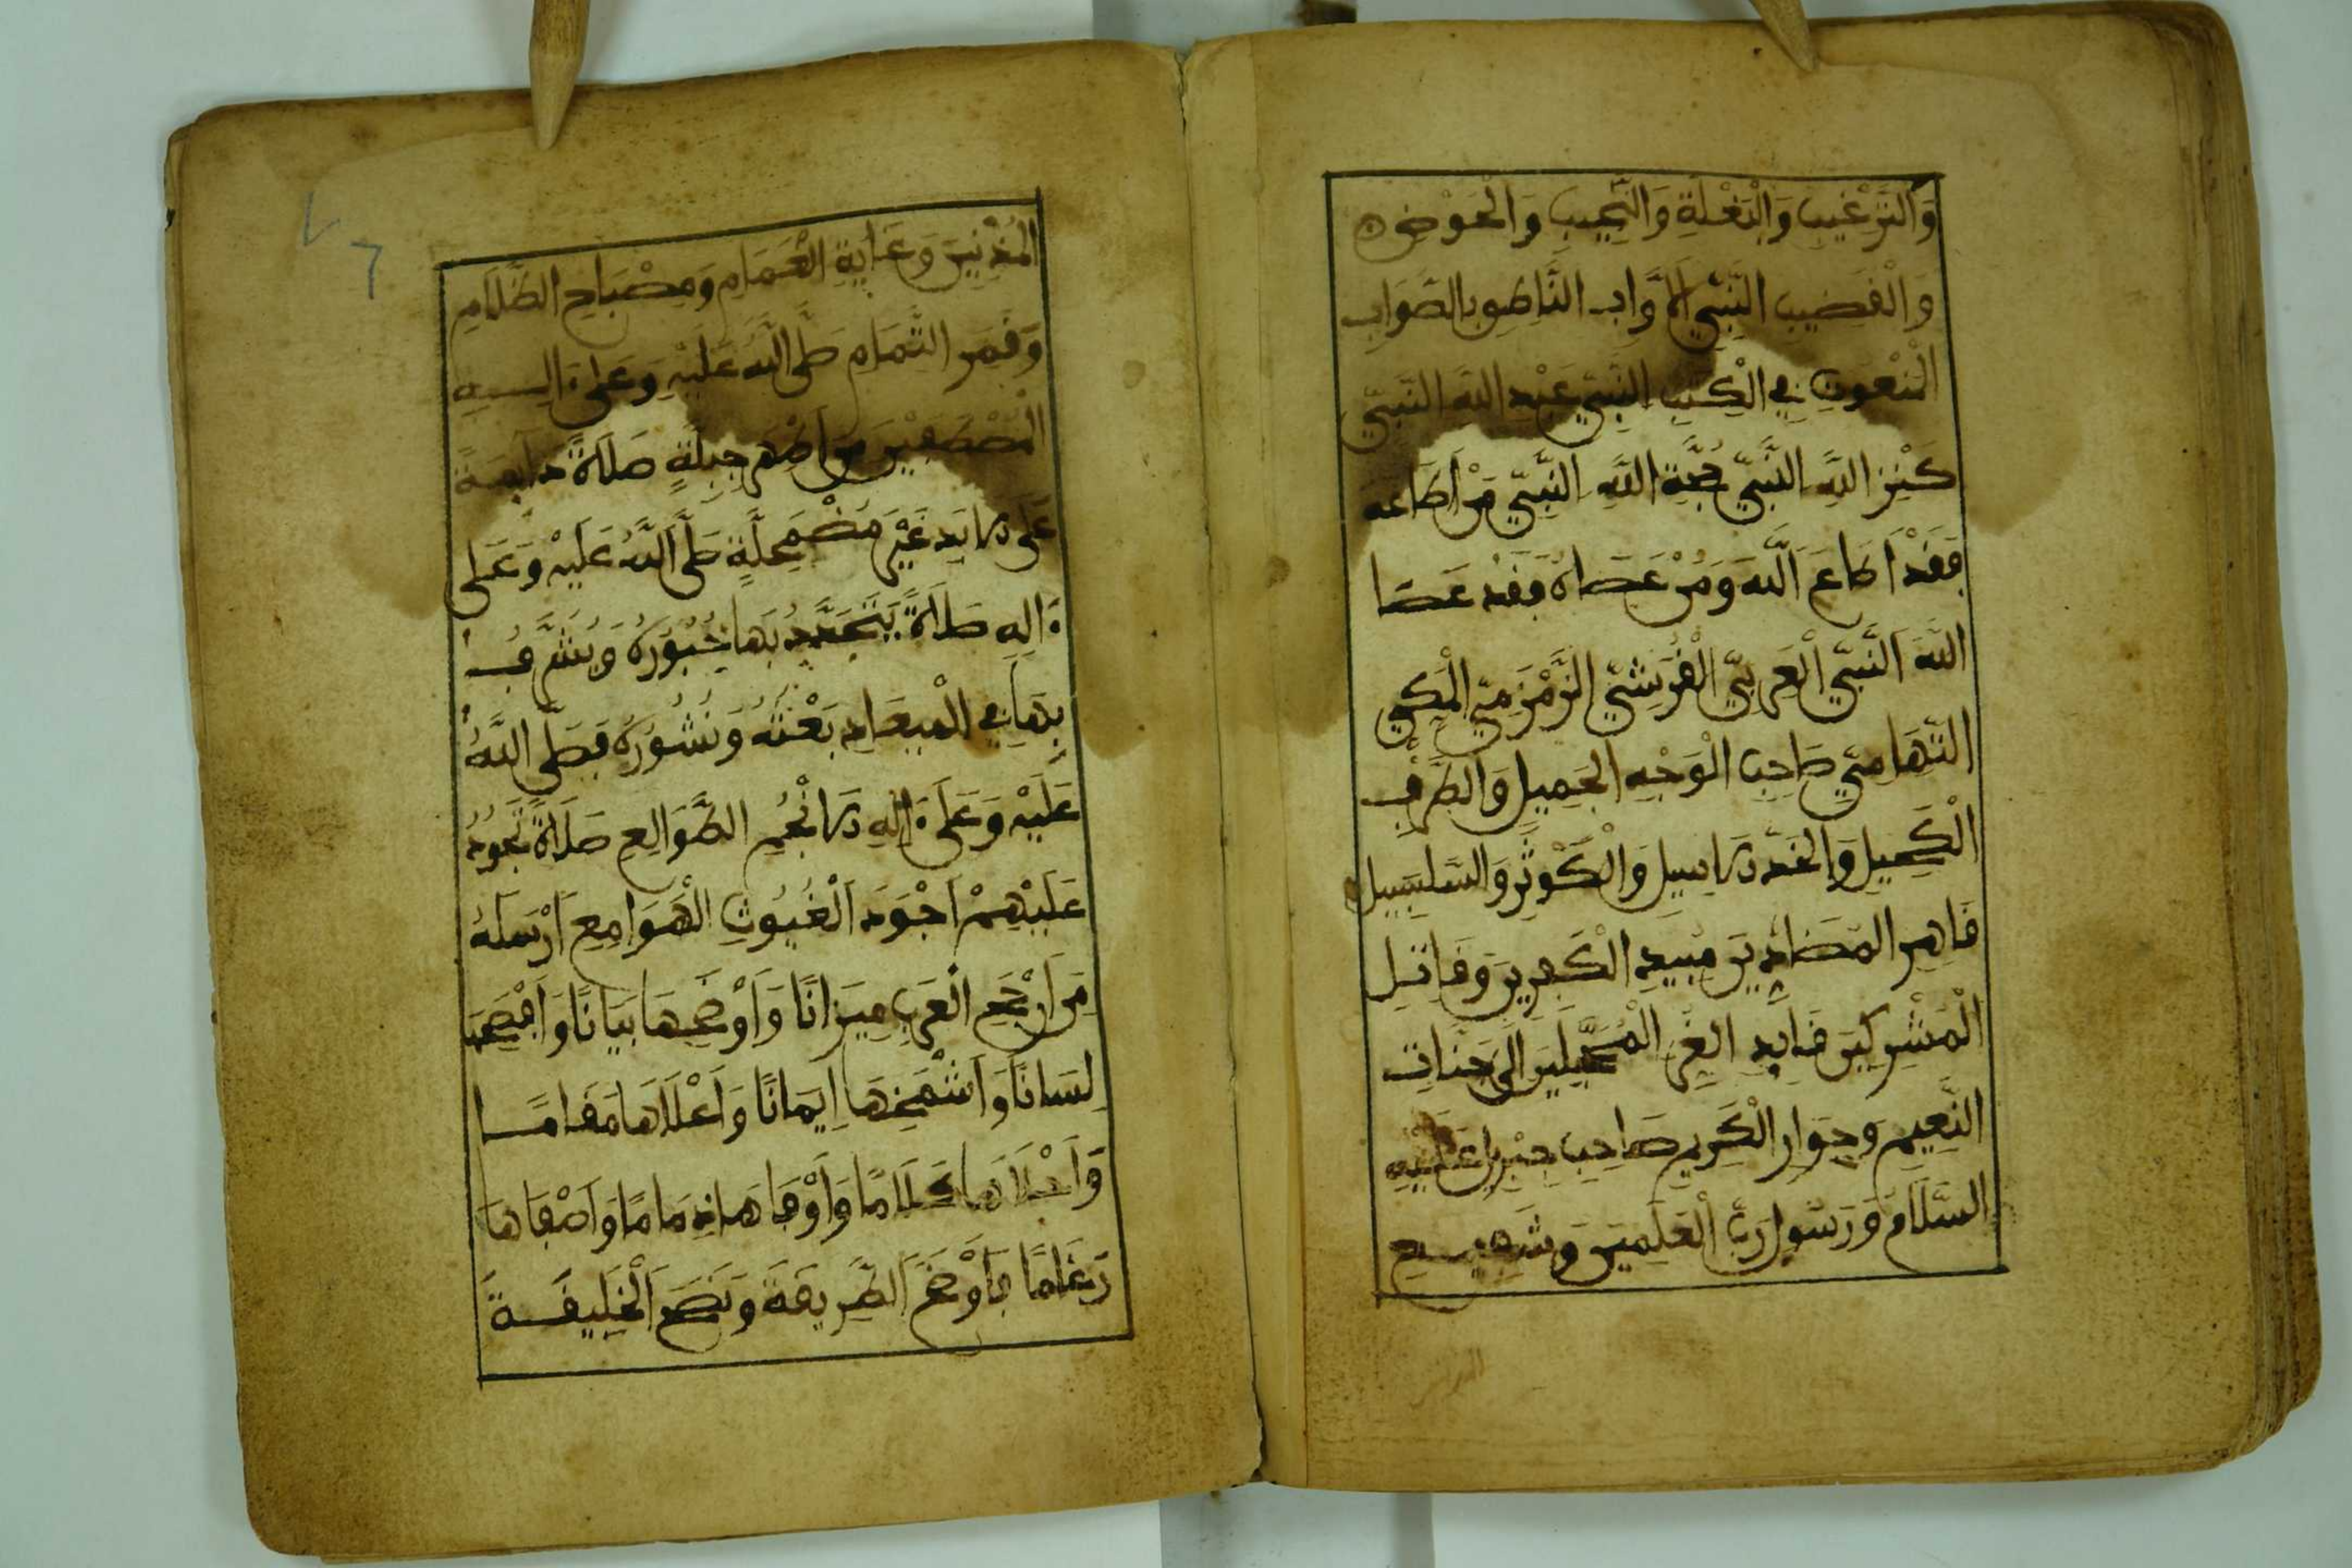 وَالتَّرْغِيبِ وَالْبَغْلَةِ وَالنَّجِيبِ وَالْحَوْضِ
وَالْقَضِيبِ النَّبِيِّ الْأَوَّابِ النَّاطِقِ بِالصَّوَابِ
الْمَنْعُوتِ فِي الْكِتَبِ النَّبِيِّ عَبْدِ اللَّهِ النَّبِيِّ
كَنْزِ اللَّهِ النَّبِيِّ حُجَّةِ اللَّهِ النَّبِيِّ مَنْ أَطَاعَهُ
فَقَدْ أَطَاعَ اللَّهَ وَمَنْ عَصَاهُ فَقَدْ عَصَا
اللَّهَ النَّبِيِّ الْعَرَبِيِّ الْقُرَشِيِّ الزَّمْزَمِيِّ الْمَكِّيِّ
التِّهَامِيِّ صَاحِبِ الْوَجْهِ الْجَمِيلِ وَالطَّرْفِ
الْكَحِيلِ وَالْخَدِّ الْأَسِيلِ وَالْكَوْثَرِ وَالسَّلْسَبِيلِ
قَاهِرِ الْمُضَادِّينَ مُبِيدِ الْكَفِرِينَ وَقَاتِلِ
الْمُشْرِكِينَ قَائِدِ الْغُرِّ الْمُحَجَّلِينَ إِلَى جَنَّاتِ
النَّعِيمِ وَجِوَارِ الْكَرِيمِ صَاحِبِ جِبْرِيلَ عَلَيْهِ
السَّلَامُ وَرَسُولِ رَبِّ الْعَلَمِينَ وَشَفِيعِ
الْمُذْنِبِينَ وَغَايَةِ الْغَمَامِ وَمِصْبَاحِ الظَّلَامِ
وَقَمَرِ التَّمَامِ صَلَّى اللَّهُ عَلَيْهِ وَعَلَى ءَالِهِ
الْمُصْطَفَيْنَ مِنْ أَطْهَرِ جِبِلَّةٍ صَلَاةً دَائِمَةً
عَلَى الْأَبَدِ غَيْرَ مُضْمَحِلَّةٍ صَلَّى اللَّهُ عَلَيْهِ وَعَلَى
ءَالِهِ صَلَاةً يَتَجَدَّدُ بِهَا حُبُورُهُ وَيُشَرَّفُ
بِهَا فِي الْمِيعَادِ بَعْثُهُ وَنُشُورُهُ فَصَلَّى اللَّهُ
عَلَيْهِ وَعَلَى ءَالِهِ الْأَنْجُمِ الطَّوَالِعِ صَلَاةً تَجُودُ
عَلَيْهِمْ أَجْوَدَ الْغُيُوثِ الْهَوَامِعِ أَرْسَلَهُ
مِنْ أَرْجَحِ الْعَرَبِ مِيزَانًا وَأَوْضَحِهَا بَيَانًا وَأَفْصَحِهَا
لِسَانًا وَأَشْمَخِهَا إِيمَانًا وَأَعْلَاهَا مَقَامًا
وَأَحْلَاهَا كَلَامًا وَأَوْفَاهَا ذِمَامًا وَأَصْفَاهَا
رَغَامًا فَأَوْضَحَ الطَّرِيقَةَ وَنَصَحَ الْخَلِيقَةَ